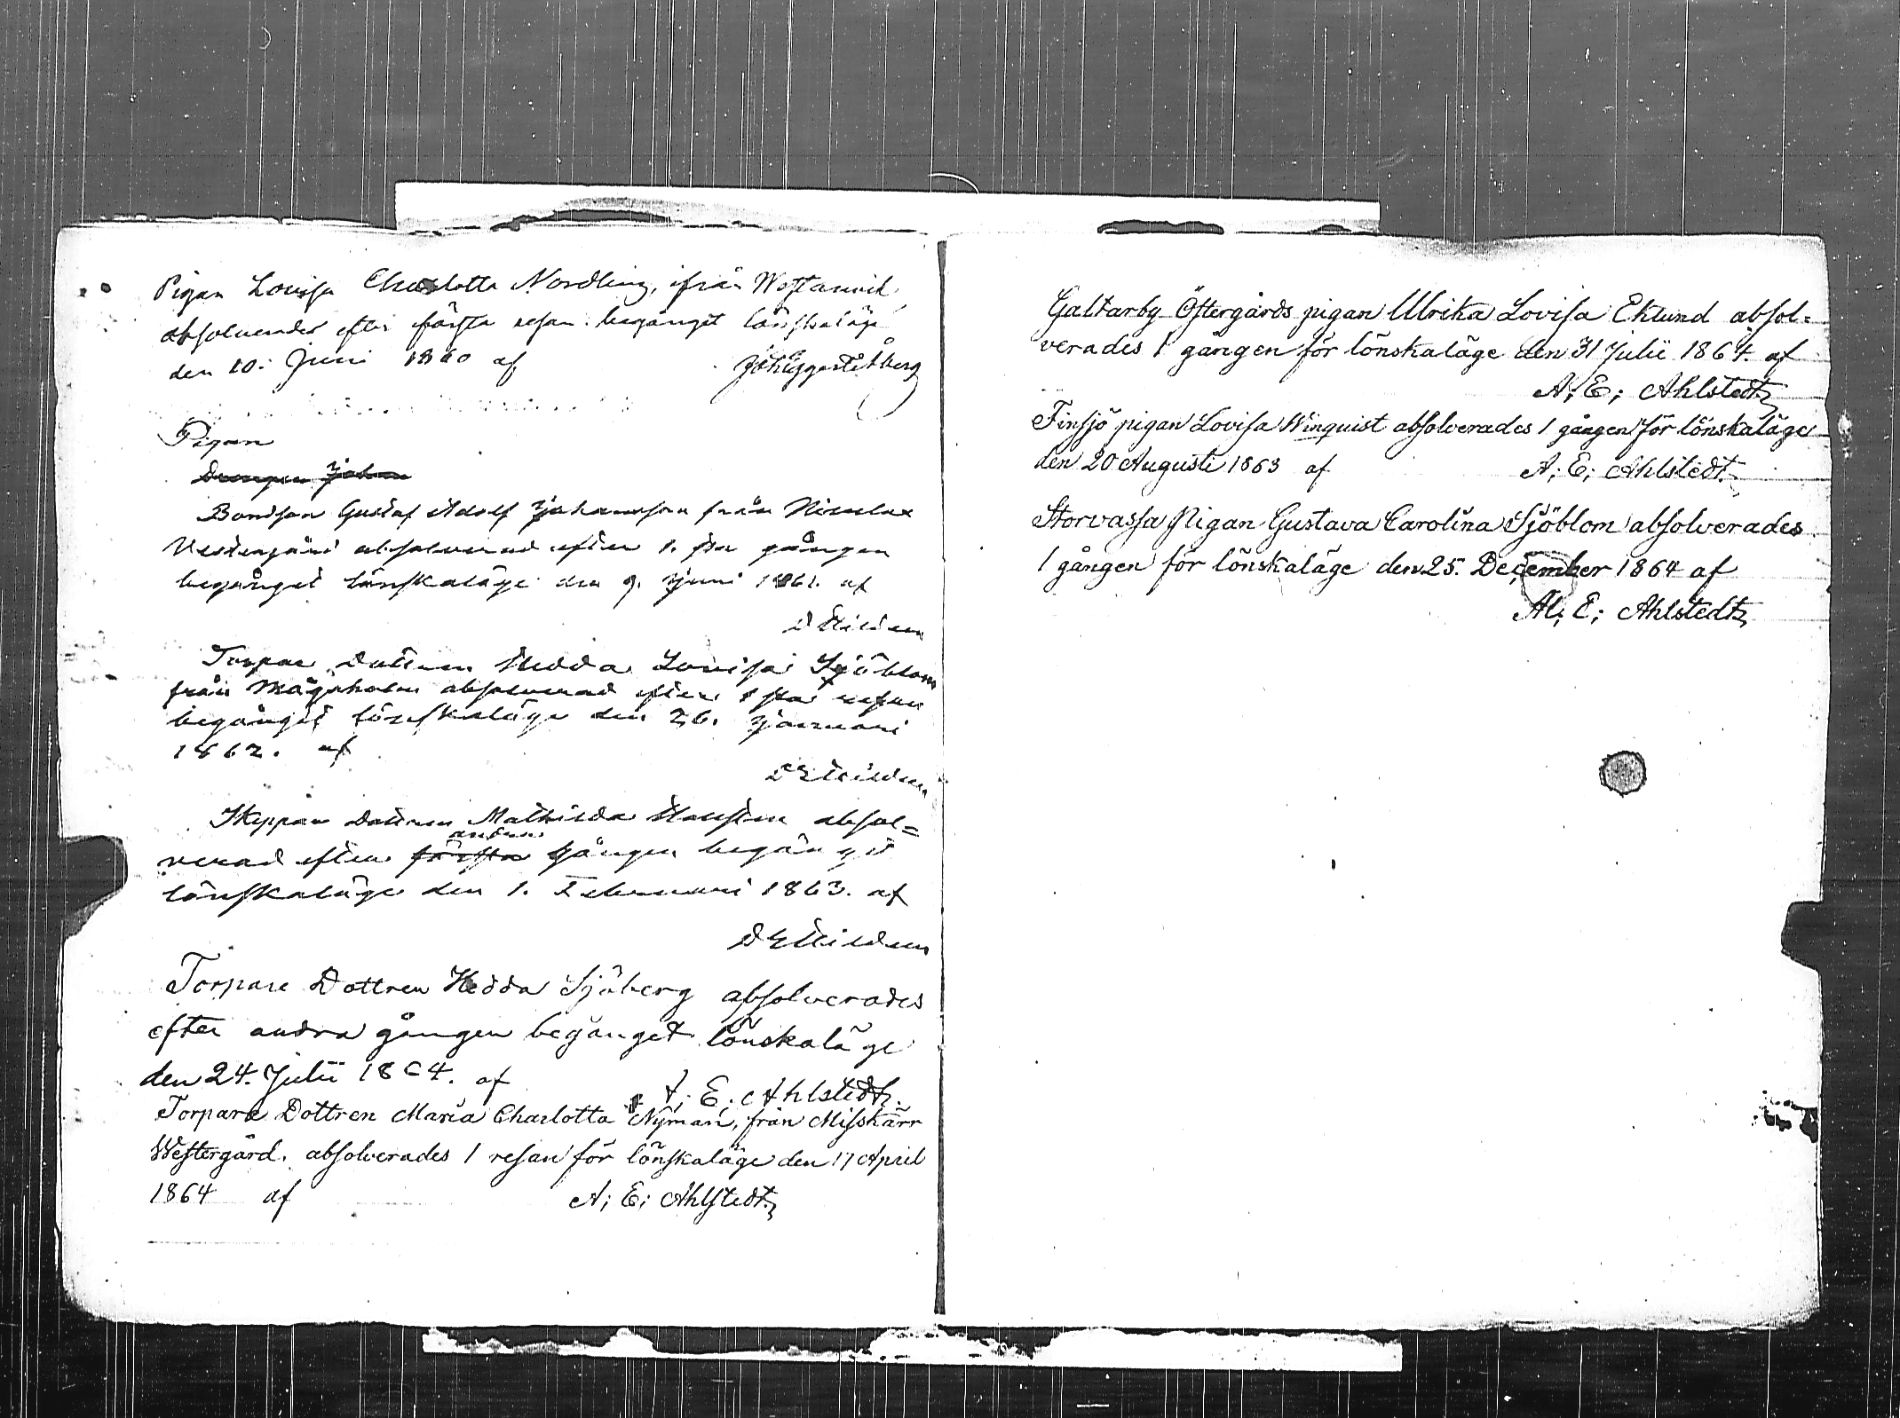 Pigan Lovisa Charlotta Nordling, ifrån Westanvik,
absolverades efter första resan begånget lönskaläge
den 10. Juni 1860 af
Pigan
Drengen Johan
Bondson Gustaf Adolf Johansson från
Westergård absolverad efter 1. sta gången
begånget lönskaläge den 9. Juni 1861. af
Torpare dottren Hedda Lovisa Sjöblom
från absolverad efter 1 sta resan
begånget lönskaläge den 26. Januari
1862. af
Skeppare dottren Mathilda absol=
andra
verad efter första gången begånget
lönskaläge den 1. Februari 1863. af
Torpare Dottren Hedda Sjöberg absolverades
efter andra gången begånget lönskaläge
den 24. Julii 1864. af
A; E. Ahlstedt.
Torpare Dottren Maria Charlotta Nyman, från Misskärr
Westergård. absolverades 1 resan för lönskaläge den 17 April
1864 af A; E; Ahlstedt.
Galtarby Östergårds pigan Ulrika Lovisa Eklund absol=
verades 1 gången för lönskaläge den 31 Julii 1864. af
A; E; Ahlstedt
Finsjö pigan Lovisa Winquist absolverades 1 gången för lönskaläge
den 20 Augusti 1863 af A; E; Ahlstedt.
Storvassa Pigan Gustava Carolina Sjöblom absolverades
1 gången för lönskaläge den 25. December 1864 af
A; E; Ahlstedt